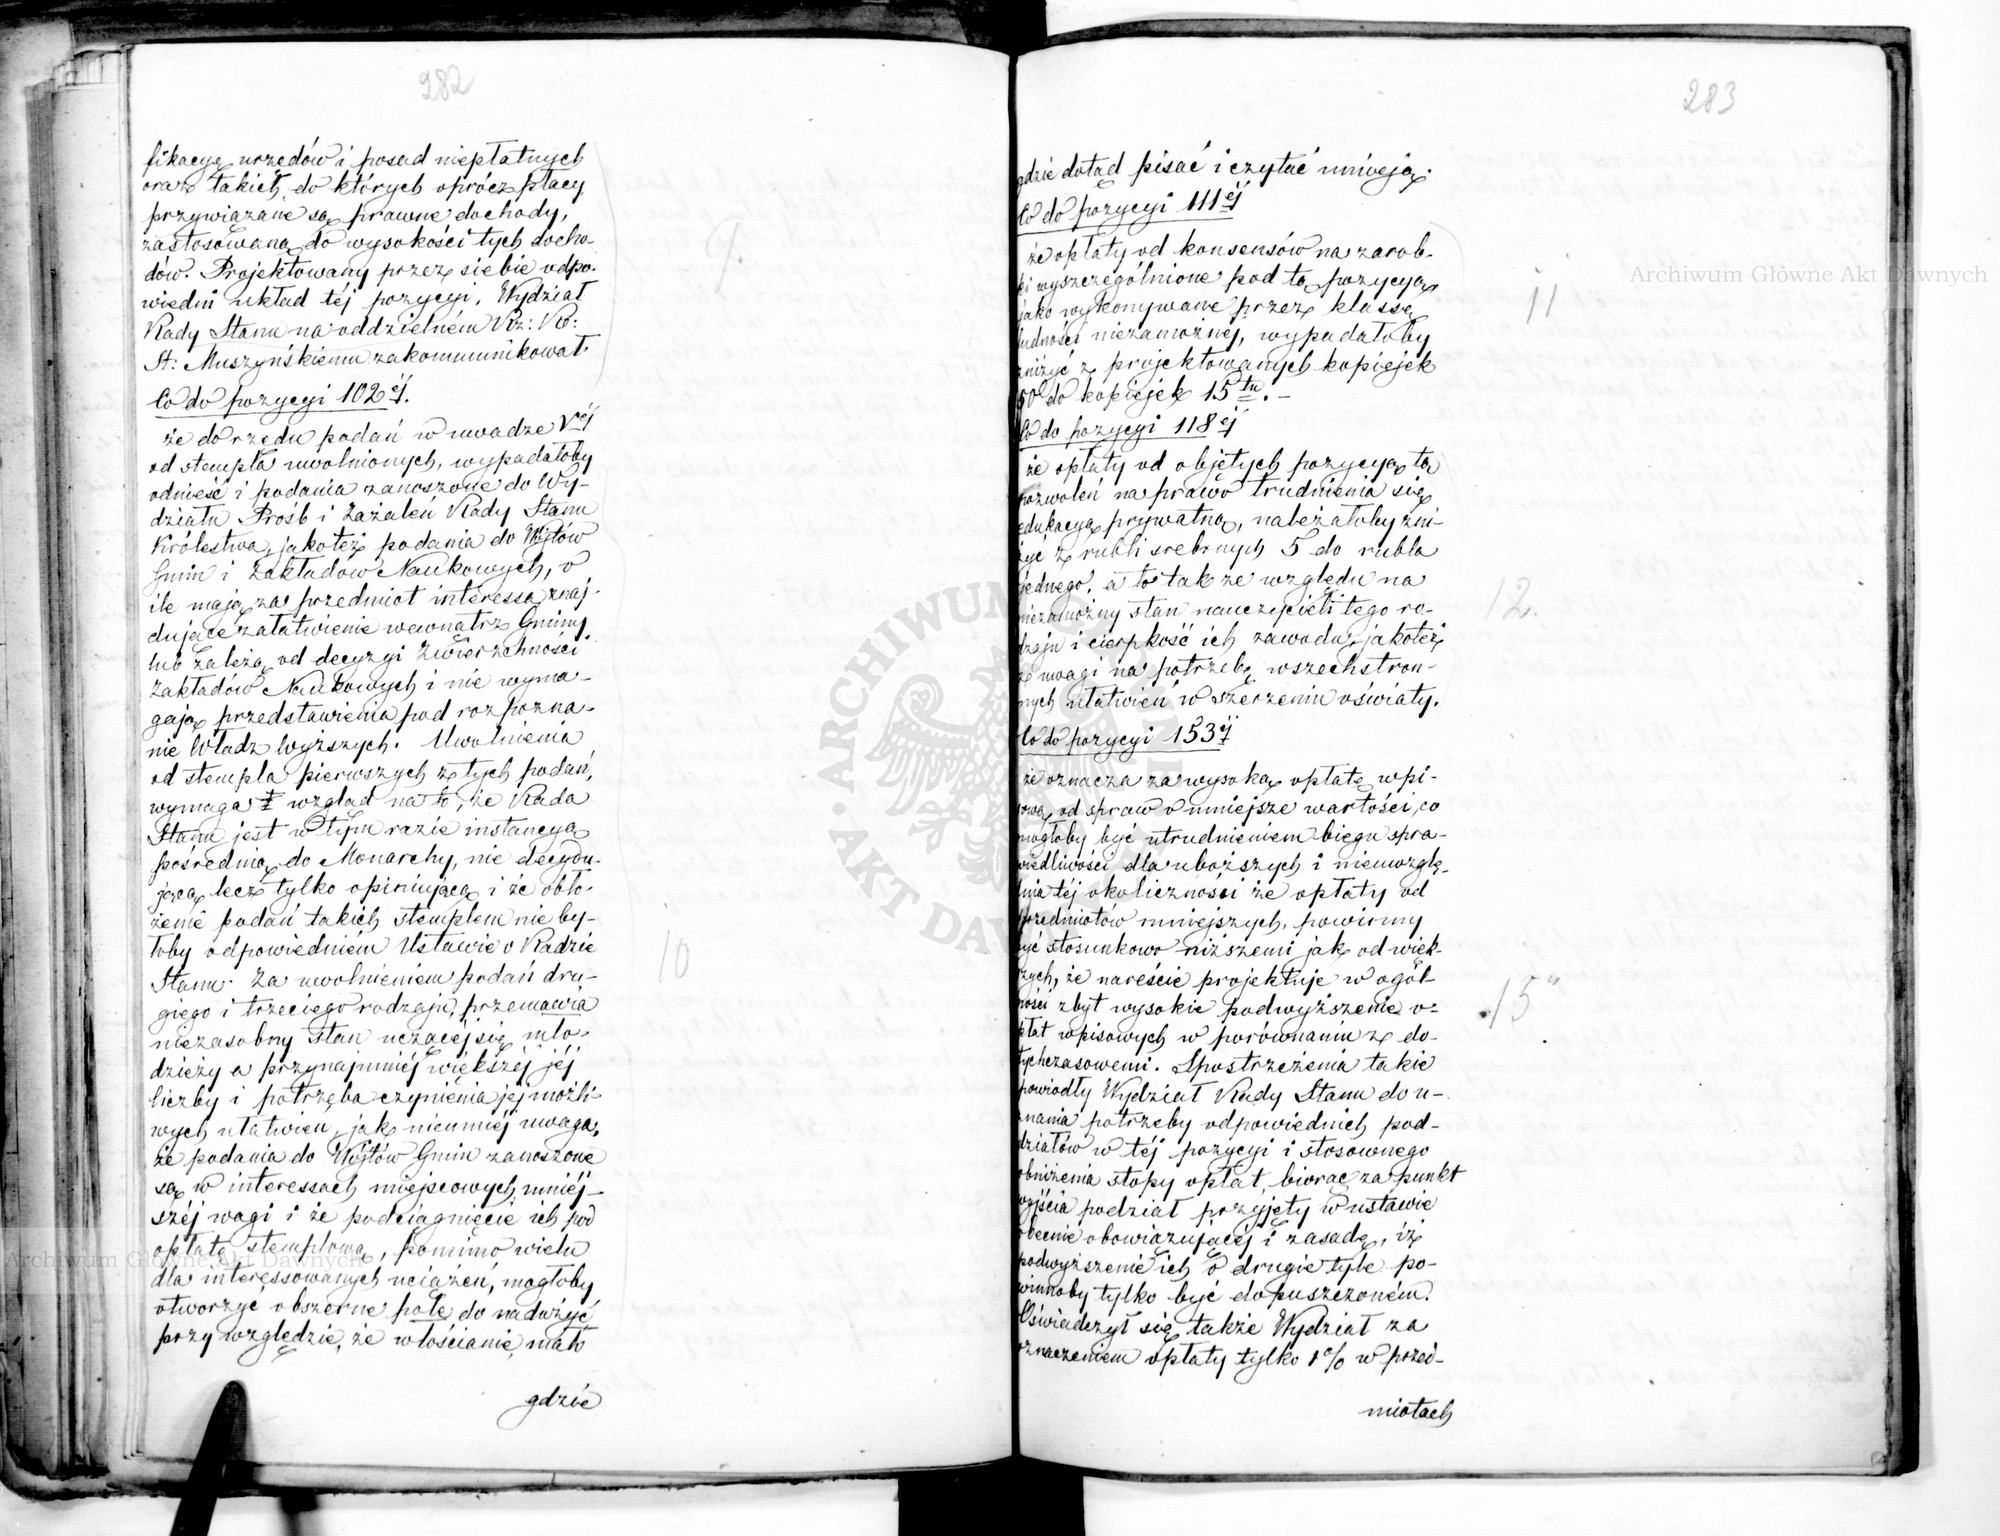 282
fikacyę urzędów i posad niepłatnych
oraz takich, do których oprócz płacy
przywiązane są prawne dochody,
zastosowaną do wysokości tych docho-
dów. Projektowany przez siebie odpo-
wiedni układ téj pozycyi, Wydział
Rady Stanu na oddzielném Rz: Ra:
St: Muszyńskiemu zakommunikował.
Co do pozycyi 102éj.
że do rzędu podań w uwadze Véj
od stempla uwolnionych, wypadałoby
odnieść i podania zanoszone do Wy-
działu Próśb i Zażaleń Rady Stanu
Królestwa, jakoteż podania do Wójtów
Gmin i Zakładów Naukowych, o
ile mają za przedmiot interessa znaj-
dujące załatwienie wewnątrz Gminy
lub zależą od decyzyi Zwierzchności
Zakładów Naukowych i nie wyma-
gają przedstawienia pod rozpozna-
nie Władz Wyższych. Uwolnienia
od stempla pierwszych z tych podań,
wymaga wzgląd na to, że Rada
Stanu jest w tym razie instancyą
pośrednią do Monarchy, nie decydu-
jącą lecz tylko opiniującą i że obło-
żenie podań takich stemplem nie by-
łoby odpowiedniém Ustawie o Radzie
Stanu. Za uwolnieniem podań dru-
giego i trzeciego rodzaju, przemawia
niezasobny stan uczącéj się mło-
dzieży a przynajmniéj większéj jéj
liczby i potrzeba czynienia jej możli-
wych ułatwień, jak niemniéj uwaga,
że podania do Wójtów Gmin zanoszone
są w interessach miejscowych mniéj-
széj wagi i że podciągnięcie ich pod
opłatę stemplową, pomimo wielu
dla interessowanych uciążeń, mogłoby
otworzyć obszerne pole do nadużyć
przy względzie, że włościanie mało
gdzie
9.
10
283
gdzie dotąd pisać i czytać umieją.
Co do pozycyi 111éj
że opłaty od konsensów na zarob-
ki wyszczególnione pod tą pozycyą
jako wykonywane przez klassę
ludności niezamożnéj, wypadałoby
zniżyć z projektowanych kopiejek
50 do kopiejek 15tu. –
Co do pozycyi 118éj
że opłaty od objętych pozycyą tą
pozwoleń na prawo trudnienia się
edukacyą prywatną, należałoby zni-
żyć z rubli srebrnych 5 do rubla
jednego, a to tak ze względu na
niezamożny stan nauczycieli tego ro-
dzaju i cierpkość ich zawodu, jakoteż
z uwagi na potrzebę wszechstron-
nych ułatwień w szerzeniu oświaty.
Co do pozycyi 153éj
że oznacza za wysoką opłatę wpi-
sową od spraw o mniejsze wartości, co
mogłoby być utrudnieniem biegu spra-
wiedliwości dla uboższych i nieuwzglę-
dnia téj okoliczności że opłaty od
przedmiotów mniejszych, powinny
być stosunkowo niższemi jak od więk-
szych, że nareście projektuje w ogól-
ności zbyt wysokie podwyższenie o-
płat wpisowych w porównaniu z do-
tychczasowemi. Spostrzeżenia takie
powiodły Wydział Rady Stanu do u-
znania potrzeby odpowiednich pod-
działów w téj pozycyi i stosownego
obniżenia stopy opłat, biorąc za punkt
wyjścia podział przyjęty w ustawie
obecnie obowiązującéj i zasadę, iż
podwyższenie ich o drugie tyle po-
winnoby tylko być dopuszczoném.
Oświadczył się także Wydział za
oznaczeniem opłaty tylko 1% w przed-
miotach
11
12.
15
Archiwum Główne Akt Dawnych
Archiwum Główne Akt Dawnych